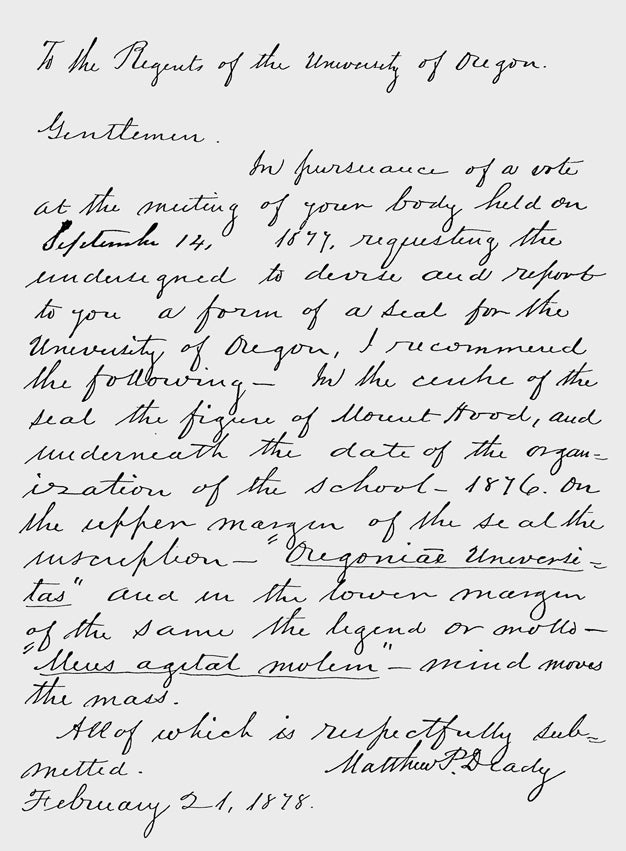 To the Regents of the University of Oregon.
Gentlemen.
In pursuance of a vote
at the meeting of your body held on
September 14, 1877, requesting the
undersigned to devise and report
to you a form of a seal for the
University of Oregon, I recommend
the following – In the centre of the
seal the figure of Mount Hood, and
underneath the date of the organ=
ization of the school – 1876. On
the upper margin of the seal the
inscription – "Oregoniae Universi=
tas" and in the lower margin
of the same the legend or motto –
"Mens agitat molem" – mind moves
the mass.
All of which is respectfully sub=
mitted. Matthew P. Deady
February 21, 1878.